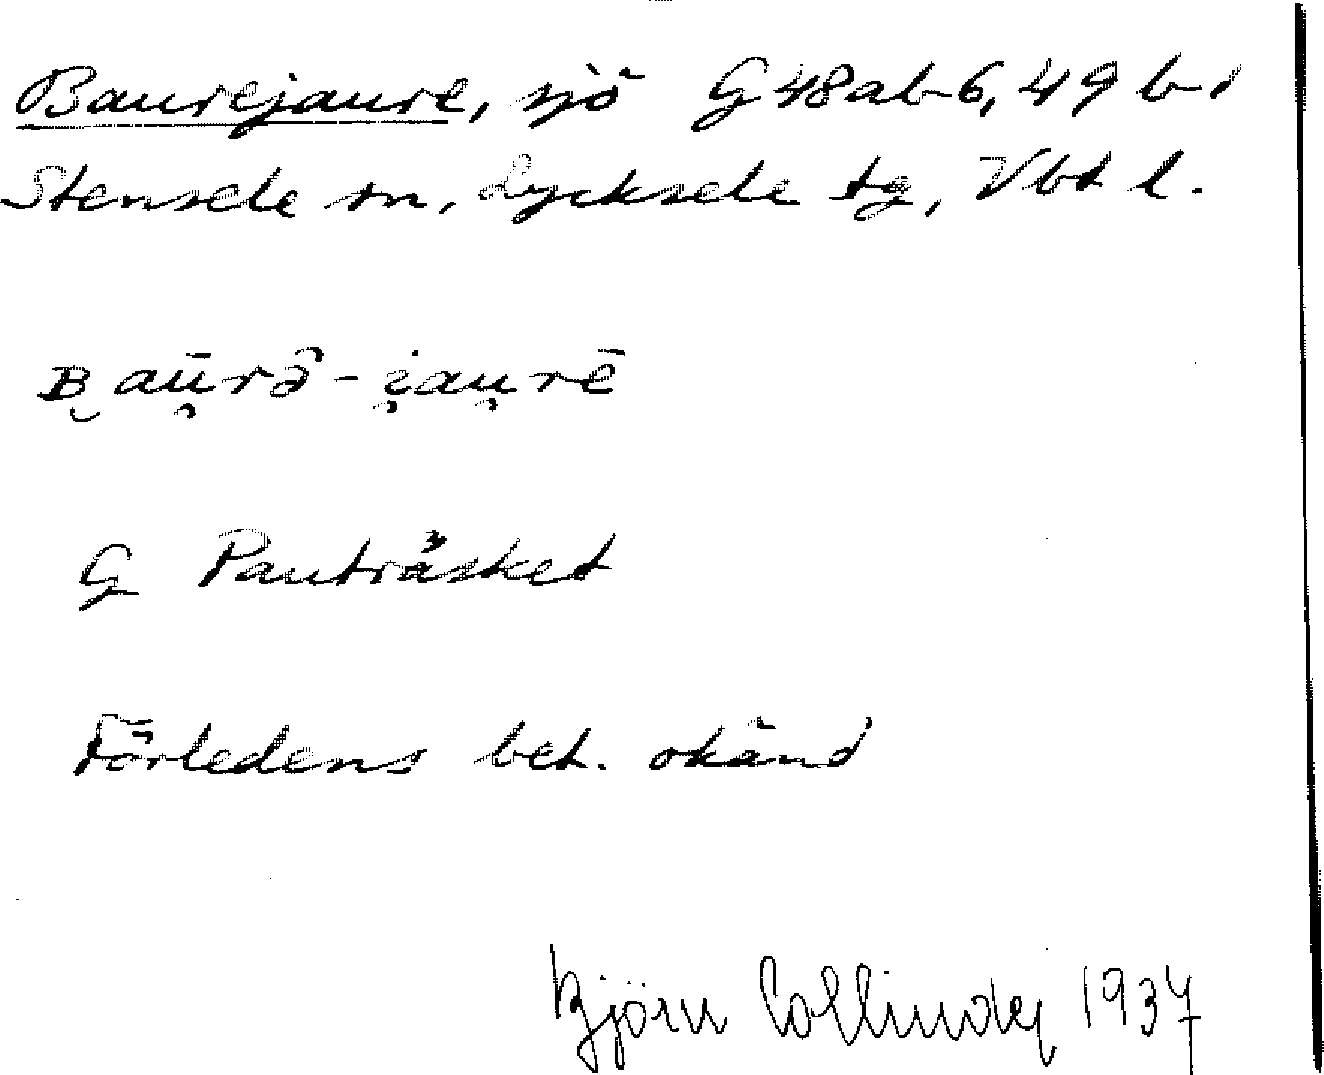 Baurejaure, sjö G 48ab6, 49 b1
Stensele sn, Lycksele tg, Vbt l.
ʙ̮aū̯rə̑̄-i̯au̯rē
G Pauträsket
Förledens bet. okänd
Björn Collinder 1937